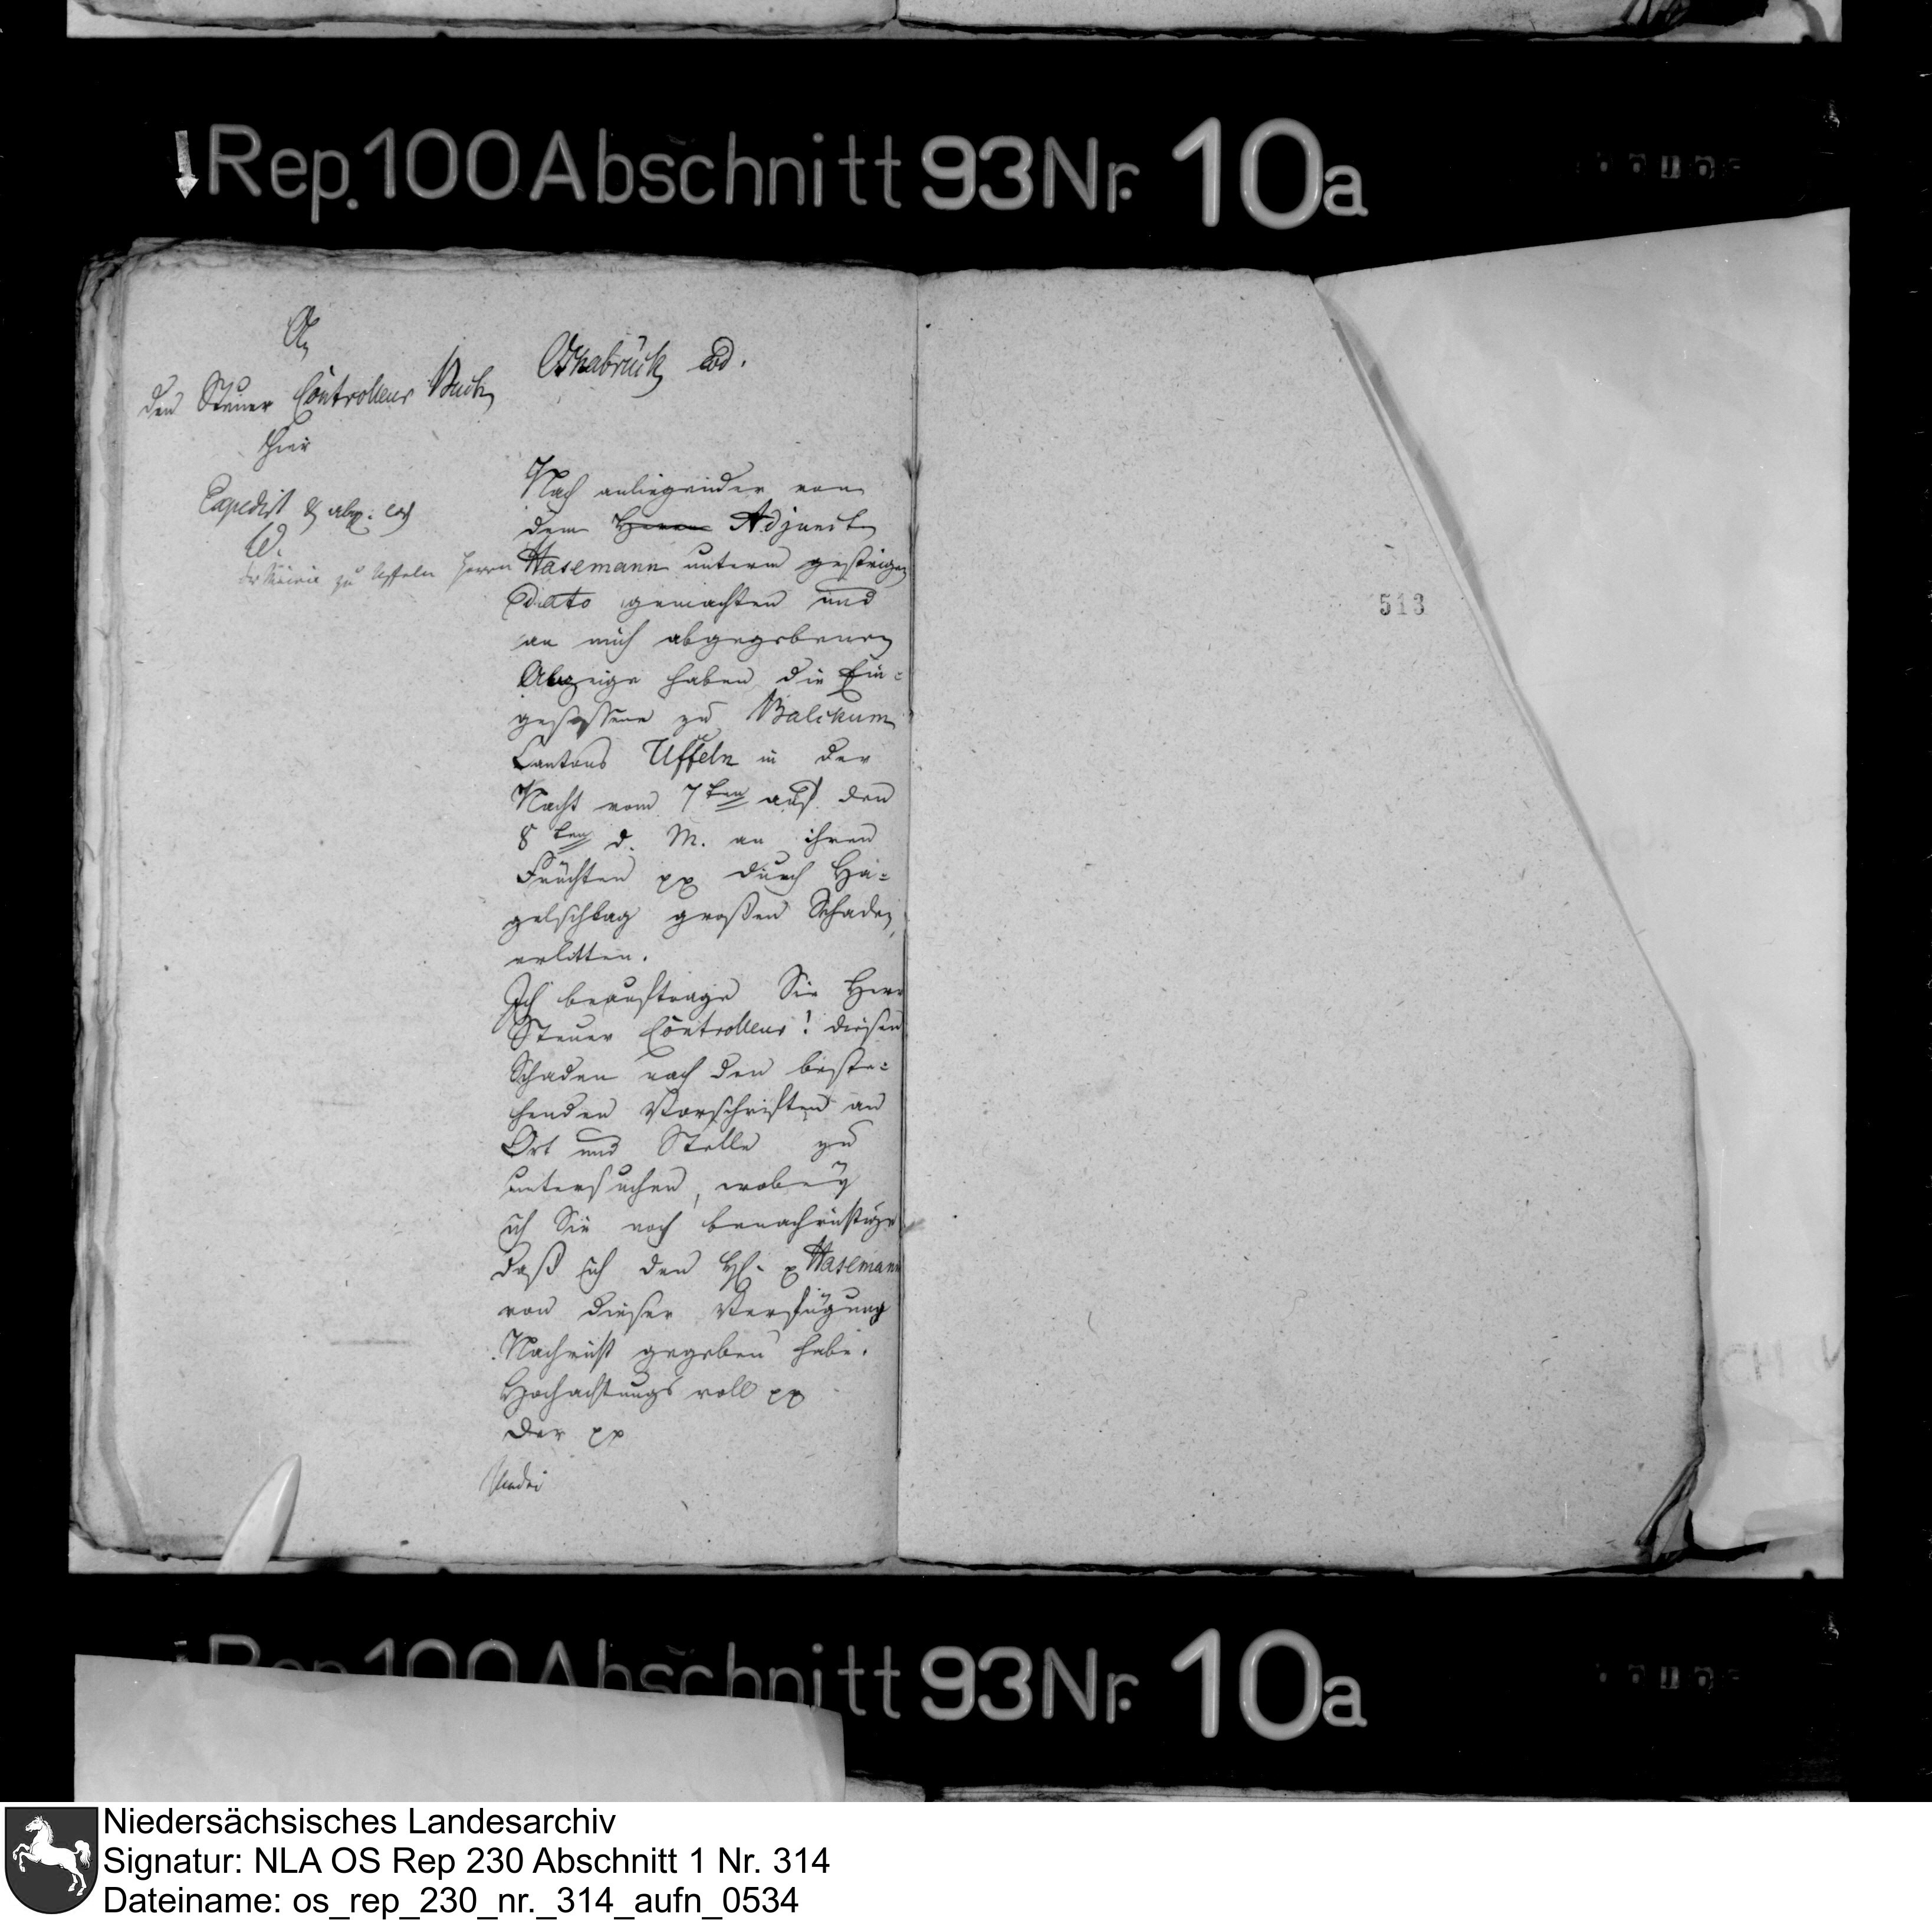 Rep. 100 Abschnitt 93 Nr. 10a
An
den Steuer Controlleur Buch
hier
Expedirt & abg. eod
Osnabrück eod.
Nach anliegender von
dem Herrn Adjunct
der Mairie zu Uffeln Herrn
Hasemann unterm gestrigen
Dato gemachten und
an mich abgegebenen
Anzeige haben die Ein=
gesessene zu Balckum
Cantons Uffeln in der
Nacht vom 7ten auf den
8ten d. M. an ihren
Früchten pp durch Ha=
gelschlag großen Schaden
erlitten.
Ich beauftrage Sie Herr
Steuer Controlleur! diesen
Schaden nach den beste=
henden Vorschriften an
Ort und Stelle zu
untersuchen, wobey
ich Sie noch benachrichtige
daß ich den H. p Hasemann
von dieser Verfügung
Nachricht gegeben habe.
Hochachtungsvoll pp
Der pp
513
Rep. 100 Abschnitt 93 Nr. 10a
Niedersächsisches Landesarchiv
Signatur: NLA OS Rep 230 Abschnitt 1 Nr. 314
Dateiname: os_rep_230_nr._314_aufn_0534